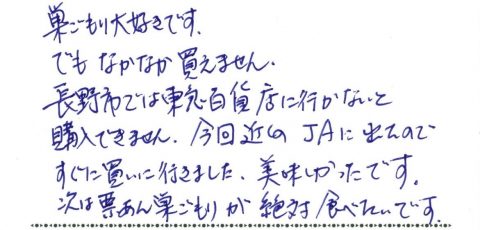 巣ごもり大好きです。
でも なかなか 買えません。
長野市では東急百貨店に行かないと
購入できません。今回近くのJAに出たので
すぐに買いに行きました。美味しかったです。
次は栗あん巣ごもりが絶対食べたいです。